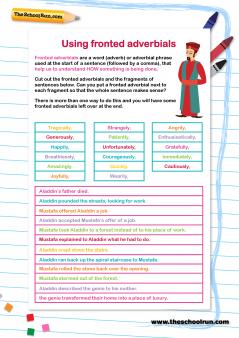 TheSchoolRun.com
Using fronted adverbials
Fronted adverbials are a word (adverb) or adverbial phrase
used at the start of a sentence (followed by a comma), that
help us to understand HOW something is being done.
Cut out the fronted adverbials and the fragments of
sentences below. Can you put a fronted adverbial next to
each fragment so that the whole sentence makes sense?
There is more than one way to do this and you will have some
fronted adverbials left over at the end.
Tragically, Strangely, Angrily,
Generously, Patiently, Enthusiastically,
Happily, Unfortunately, Gratefully,
Breathlessly, Courageously, Immediately,
Amazingly Quickly, Cautiously,
Joyfully, Wearily,
Aladdin's father died.
Aladdin pounded the streets, looking for work
Mustafa offered Aladdin a job.
Aladdin accepted Mustafa's offer of a job.
Mustafa took Aladdin to a forest instead of to his place of work.
Mustafa explained to Aladdin what he had to do.
Aladdin crept down the stairs
Aladdin ran back up the spiral staircase to Mustafa.
Mustafa rolled the stone back over the opening.
Mustafa stormed out of the forest.
Aladdin described the genie to his mother.
the genie transformed their home into a palace of luxury.
www.theschoolrun.com